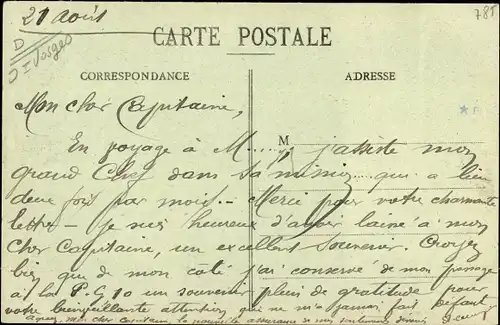 21 Août
785
D
Vosges
CARTE POSTALE
CORRESPONDANCE
ADRESSE
Mon cher Capitaine,
En voyage à M.... j'assiste mon
M
grand Chef dans sa mission qui a lieu
deux fois par mois. — Merci pour votre charmante
lettre — je suis heureux d'avoir laissé à mon
cher Capitaine, un excellent souvenir. Croyez
bien que de mon côté j'ai conservé de mon passage
à la P.G. 10 un souvenir plein de gratitude pour
votre bienveillante attention qui ne m'a jamais fait défaut
agréez mon cher Capitaine la nouvelle assurance de mes sentiments